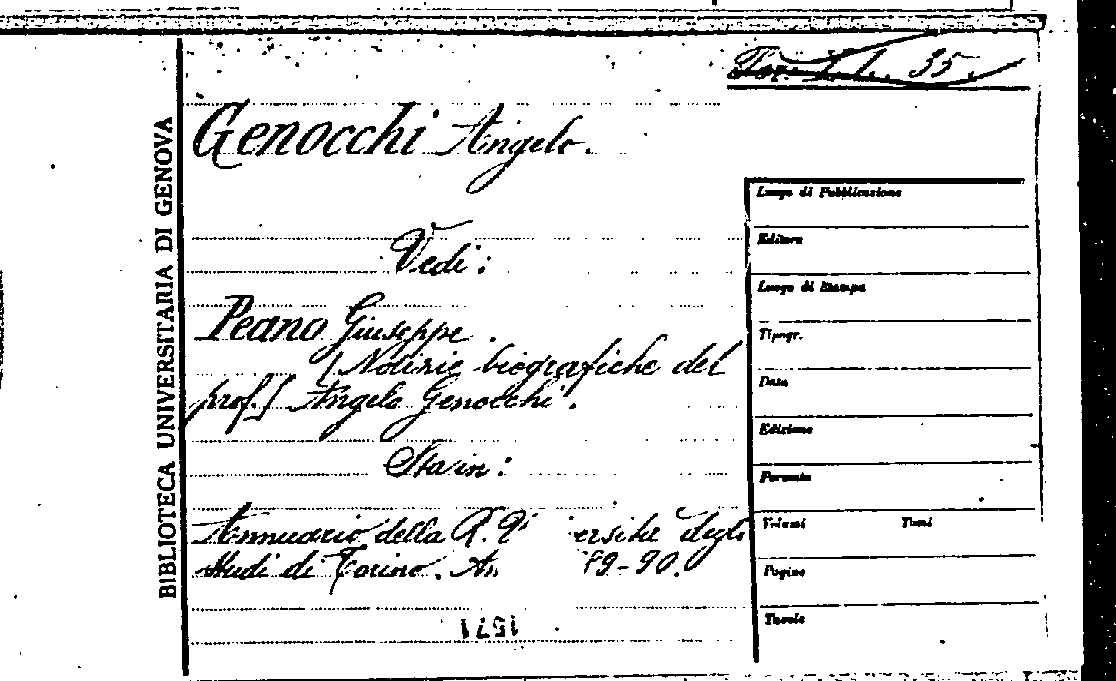 35.
Genocchi Angelo.
BIBLIOTECA UNIVERSITARIA DI GENOVA
Vedi:
Peano Giuseppe.
[Notizie biografiche del
prof.] Angelo Genocchi.
Sta in:
Annuario della R. ersità degli
Studi di Torino. An 89-90.
1571
Luogo di Pubblicazione
Editore
Luogo di Stampa
Tipogr.
Data
Edizione
Formato
Volumi Tomi
Pagine
Tavole